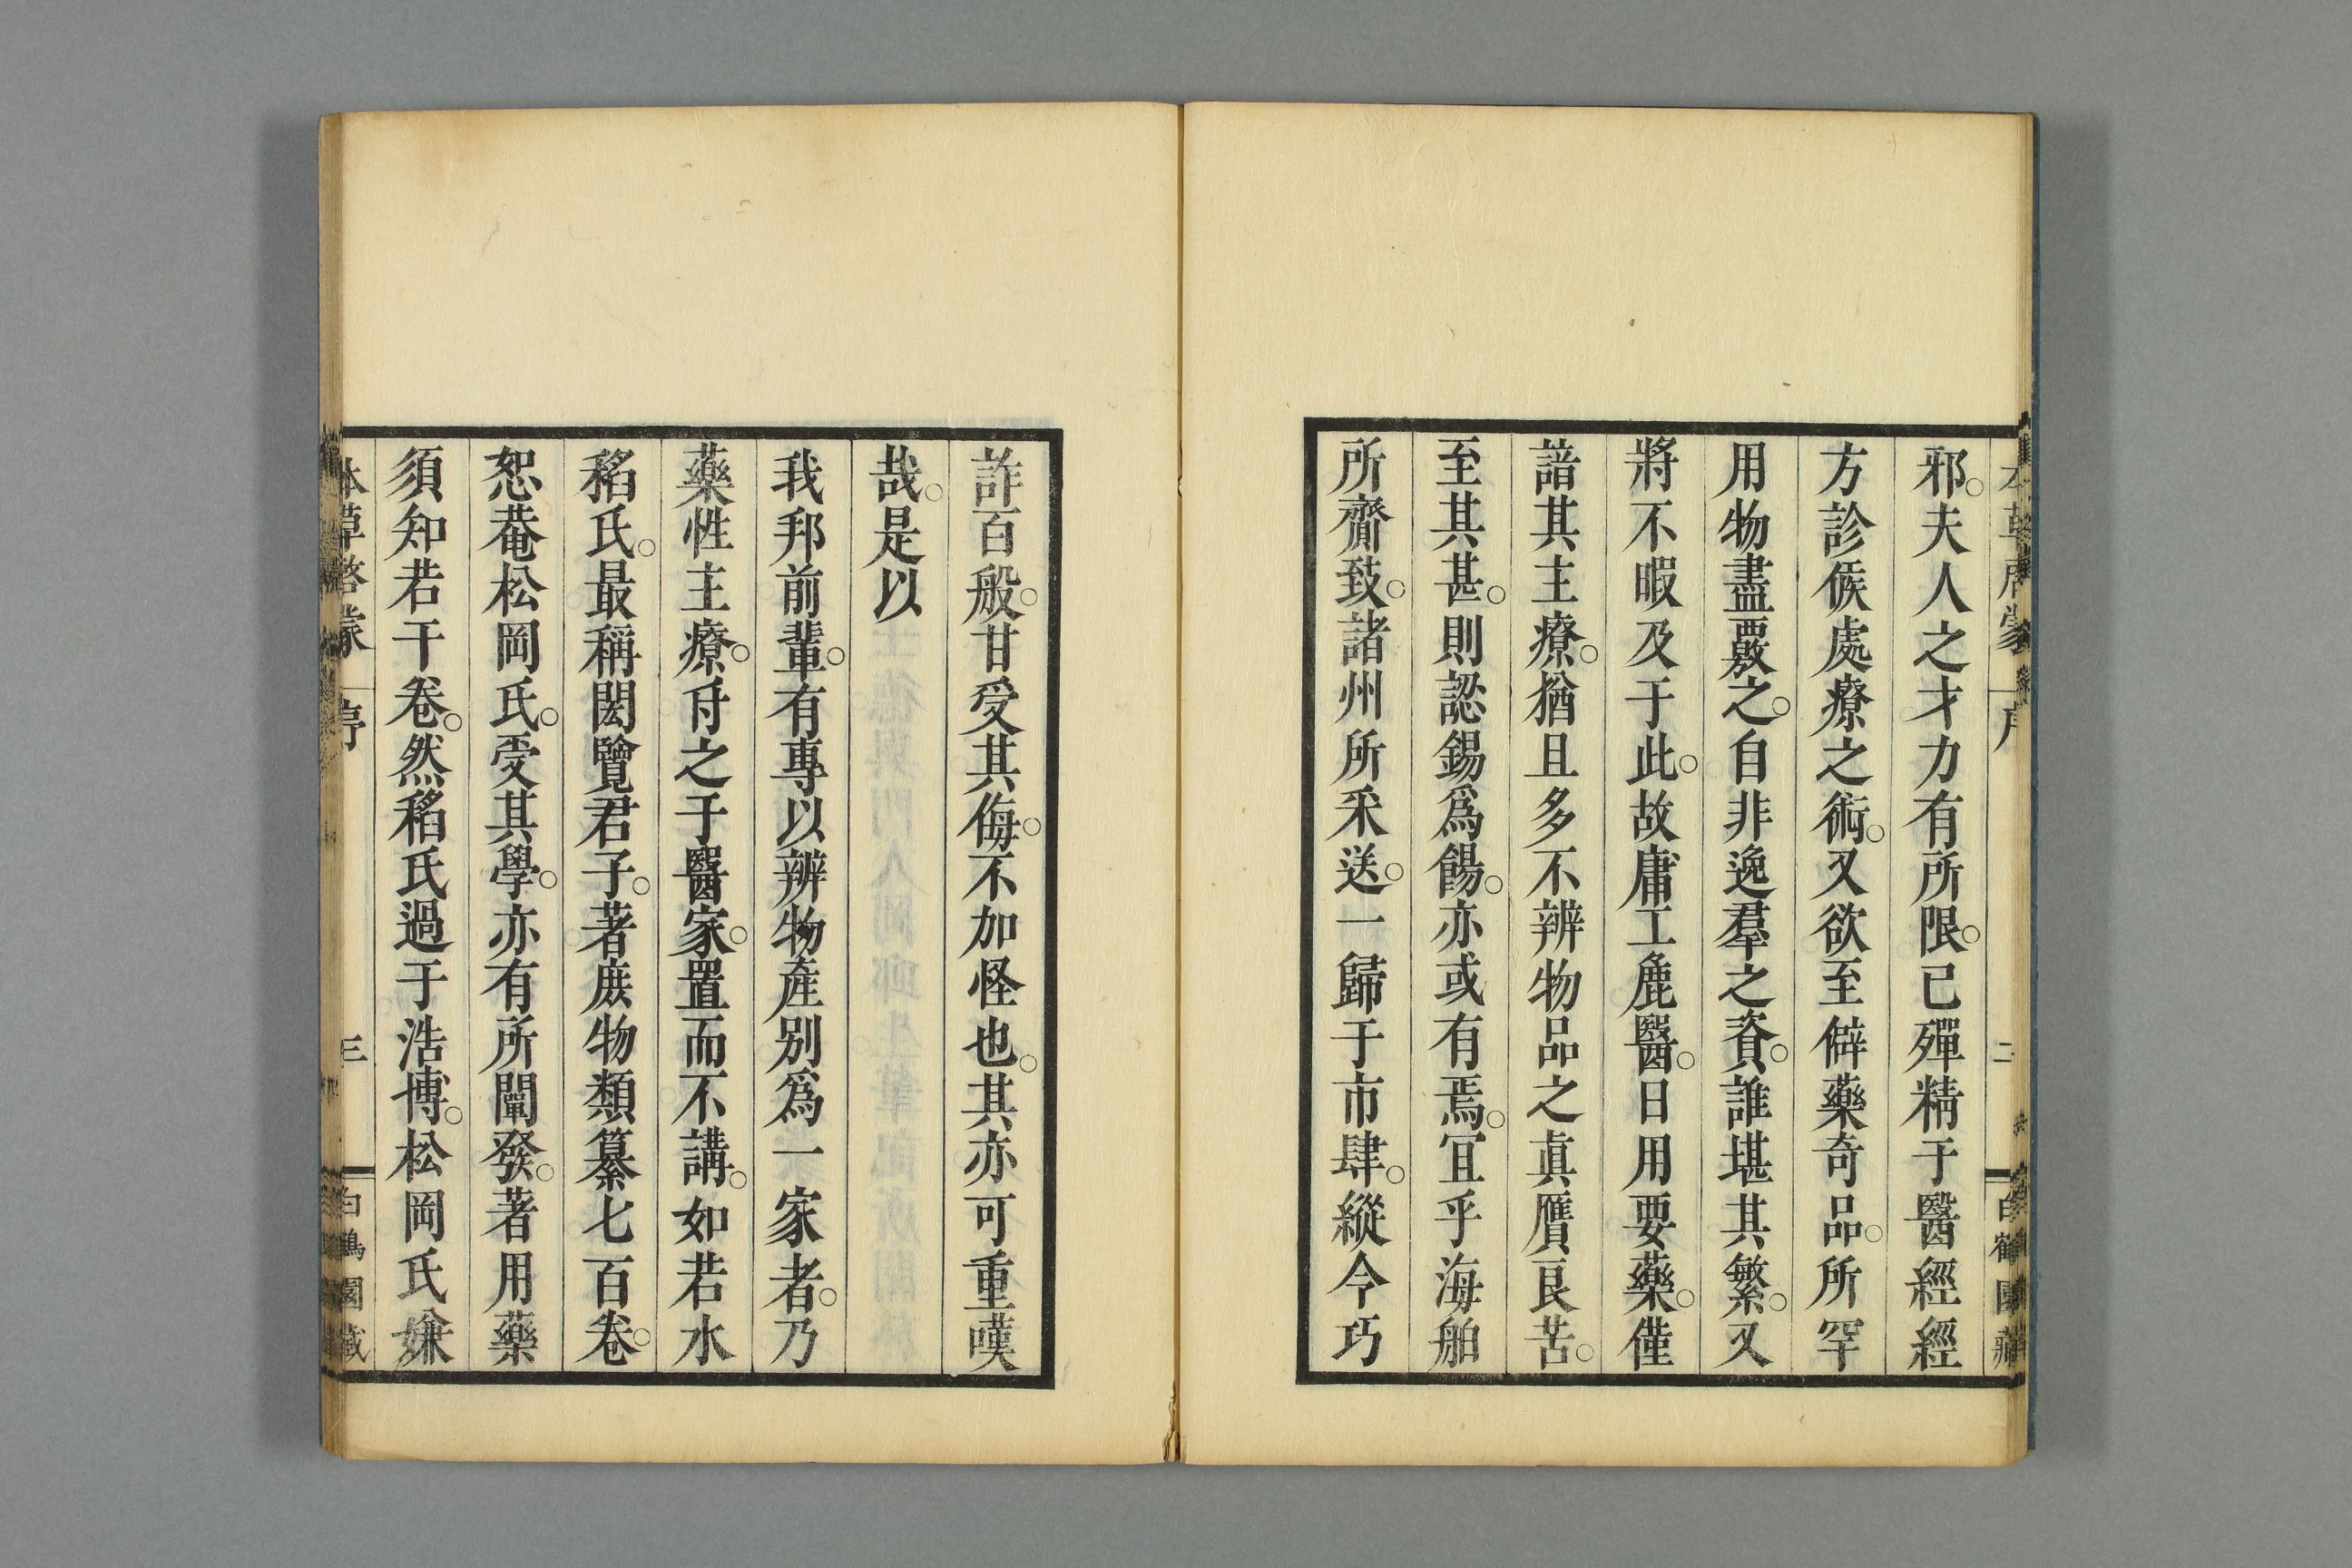 邪。夫人之才力有所限。已殫精于醫經經
方診候處療之術。又欲至僻藥奇品。所罕
用物盡覈之。自非逸羣之資。誰堪其繁。又
將不暇及于此。故庸工麁醫。日用要藥。僅
諳其主療。猶且多不辨物品之眞贋良苦。
至其甚。則認錫爲餳。亦或有焉。冝乎海舶
所齎致。諸州所釆送。一歸于市肆。縱令巧
詐百般。甘受其侮。不加怪也。其亦可重嘆
哉。是以
我邦前輩。有專以辨物產別爲一家者。乃
藥性主療。付之于醫家。置而不講。如若水
稻氏。最稱閎覽君子。著庶物類纂七百卷。
恕菴松岡氏。受其學。亦有所闡發。著用藥
須知若干卷。然稻氏過于浩博。松岡氏嫌